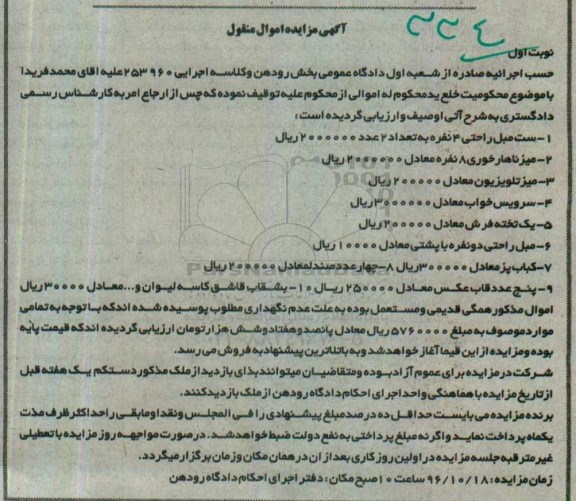 ۲۲۴
آگهی مزایده اموال منقول
نوبت اول
حسب اجرائیه صادره از شعبه اول دادگاه عمومی بخش رودهن وکلاسه اجرایی ۲۵۳۹۶۰ علیه اقای محمدفریدا
با موضوع محکومیت خلع ید محکوم له اموالی از محکوم علیه توقیف نموده که پس از ارجاع امر به کارشناس رسمی
دادگستری به شرح آتی اوصیف و ارزیابی گردیده است:
۱-ست مبل راحتی ۴ نفره به تعداد ۲ عدد ۲۰۰۰۰۰۰ ریال
۲-میز ناهارخوری ۸ نفره معادل ۲۰۰۰۰۰۰ ریال
۳-میز تلویزیون معادل ۲۰۰۰۰۰ ریال
۴-سرویس خواب معادل ۳۰۰۰۰۰ ریال
۵-یک تخته فرش معادل ۲۰۰۰۰۰ ریال
۶-مبل راحتی دونفره با پشتی معادل ۱۰۰۰۰ ریال
۷-کباب پز معادل ۳۰۰۰۰۰ ریال ۸-چهار عدد صندلمعادل ۲۰۰۰۰۰ ریال
۹-پنج عدد قاب عکس معادل ۲۵۰۰۰۰ ریال ۱۰-بشقاب قاشق کاسه لیوان و...معادل ۳۰۰۰۰ ریال
اموال مذکور همگی قدیمی و مستعمل بوده به علت عدم نگهداری مطلوب پوسیده شده اندکه با توجه به تمامی
موارد موصوف به مبلغ ۵۷۶۰۰۰۰ ریال معادل پانصد و هفتاد و شش هزار تومان ارزیابی گردیده اندکه قیمت پایه
بوده و مزایده از این قیما آغاز خواهد شد و به باتلاترین پیشنهاد به فروش می رسد.
شرکت در مزایده برای عموم آزاد بوده و متقاضیان میتوانند بذای بازدید از ملک مذکور دستکم یک هفته قبل
از تاریخ مزایده با هماهنگی واحد اجرای احکام دادگاه رودهن از ملک بازدید کنند.
برنده مزایده می بایست حداقل ده درصد مبلغ پیشنهادی را فی المجلس و نقدا و مابقی را حداکثر ظرف مذت
یکماه پرداخت نماید و اگر نه مبلغ پرداختی به نفع دولت ضبط خواهد شد. در صورت مواجهه روز مزایده با تعطیلی
غیر مترقبه جلسه مزایده در اولین روز کاری بعد از ان در همان مکان و زمان برگزار میگردد.
زمان مزایده: ۹۶/۱۰/۱۸ ساعت ۱۰ صبح مکان: دفتر اجرای احکام دادگاه رودهن